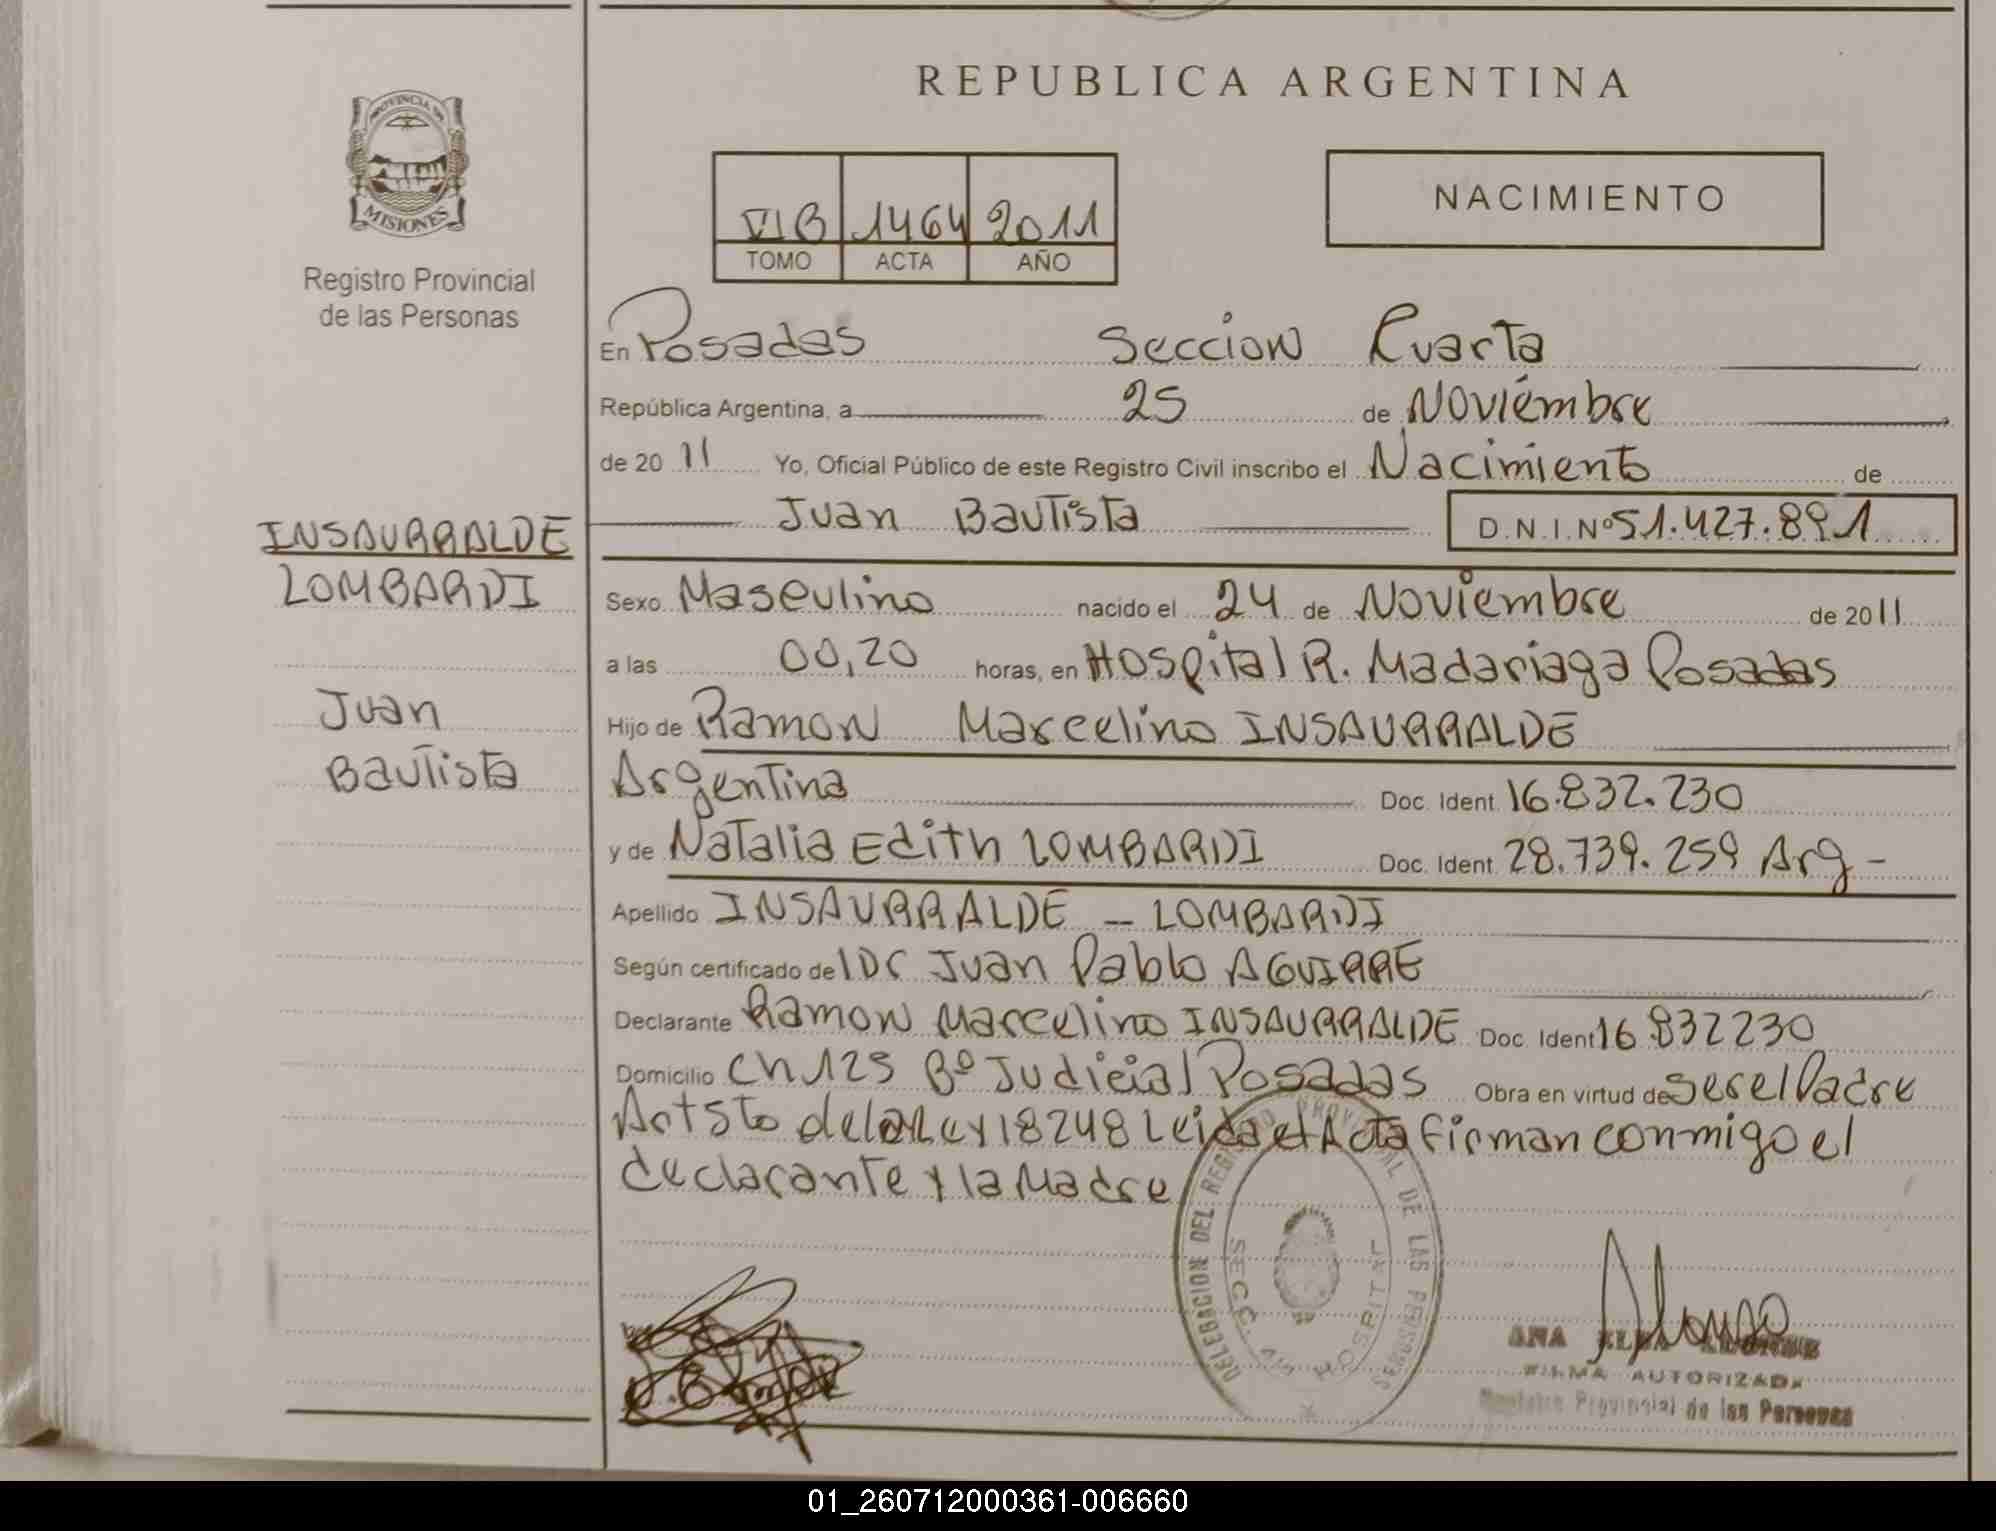 REPUBLICA ARGENTINA
PROVINCIA DE
MISIONES
Registro Provincial
de las Personas
VI B 1464 2011
TOMO ACTA AÑO
NACIMIENTO
En Posadas Seccion Cuarta
República Argentina, a 25 de Noviembre
de 20 11 Yo, Oficial Público de este Registro Civil inscribo el Nacimiento de
Juan Bautista D.N.I. Nº 51.427.891
INSAURRALDE
LOMBARDI
Juan
Bautista
Sexo Masculino nacido el 24 de Noviembre de 2011
a las 00,20 horas, en Hospital R. Madariaga Posadas
Hijo de Ramon Marcelino INSAURRALDE
Argentina Doc. Ident. 16.832.230
y de Natalia Edith LOMBARDI Doc. Ident. 28.739.259 Arg -
Apellido INSAURRALDE - LOMBARDI
Según certificado de Juan Pablo AGUIRRE
Declarante Ramon Marcelino INSAURRALDE Doc. Ident 16.832230
Domicilio Ch 125 Bº Judicial Posadas Obra en virtud de ser el Padre
Art 5to de la Ley 18248 Leida el Acta firman conmigo el
declarante y la Madre
DELEGACION DEL REGISTRO PROVINCIAL DE LAS PERSONAS
SECC. 4ta HOSPITAL
ANA
FIRMA AUTORIZADA
Registro Provincial de las Personas
01_260712000361-006660